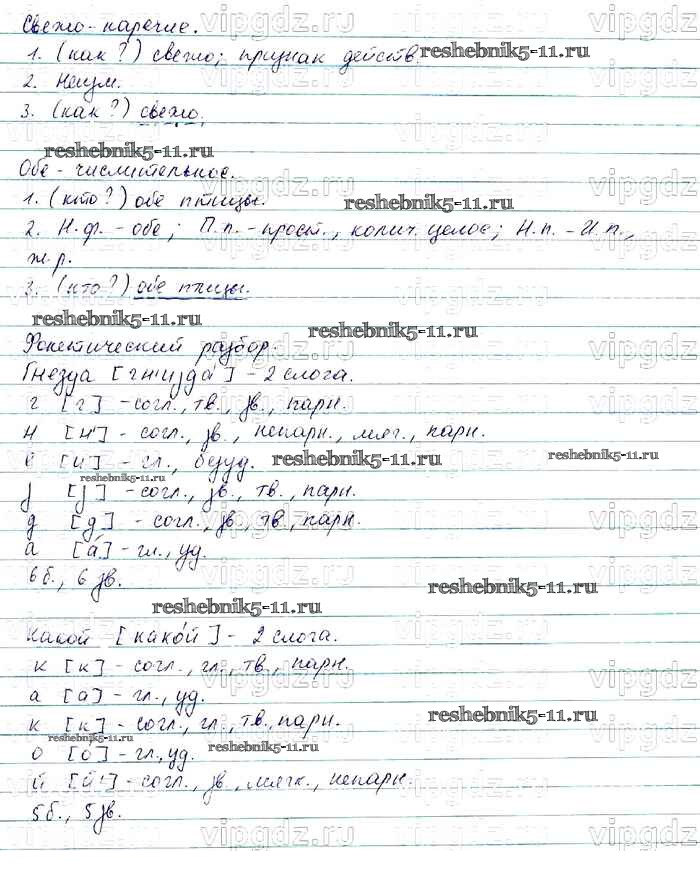 Свежо - наречие.
1. (как?) свежо; признак действ. reshebnik5-11.ru
2. Неизм.
3. (как?) свежо.
reshebnik5-11.ru
Обе - числительное.
1. (кто?) обе птицы. reshebnik5-11.ru
2. Н.ф. - обе; П.п. - прост., колич. целое; Н.п. - И.п.,
ж.р.
3. (кто?) обе птицы.
reshebnik5-11.ru reshebnik5-11.ru
Фонетический разбор.
Гнезда [гн'изда́] - 2 слога.
г [г] - согл., тв., зв., парн.
н [н'] - согл., зв., непарн., мяг., парн.
ё [и] - гл., безуд. reshebnik5-11.ru reshebnik5-11.ru
reshebnik5-11.ru
з [з] - согл., зв., тв., парн.
д [д] - согл., зв., тв., парн.
а [а́] - гл., уд.
6 б., 6 зв. reshebnik5-11.ru
reshebnik5-11.ru
Какой [како́й] - 2 слога.
к [к] - согл., гл., тв., парн.
а [а] - гл., уд.
к [к] - согл., гл., тв., парн. reshebnik5-11.ru
reshebnik5-11.ru reshebnik5-11.ru
о [о́] - гл., уд.
й [й'] - согл., зв., мягк., непарн.
5 б., 5 зв.
vipgdz.ru